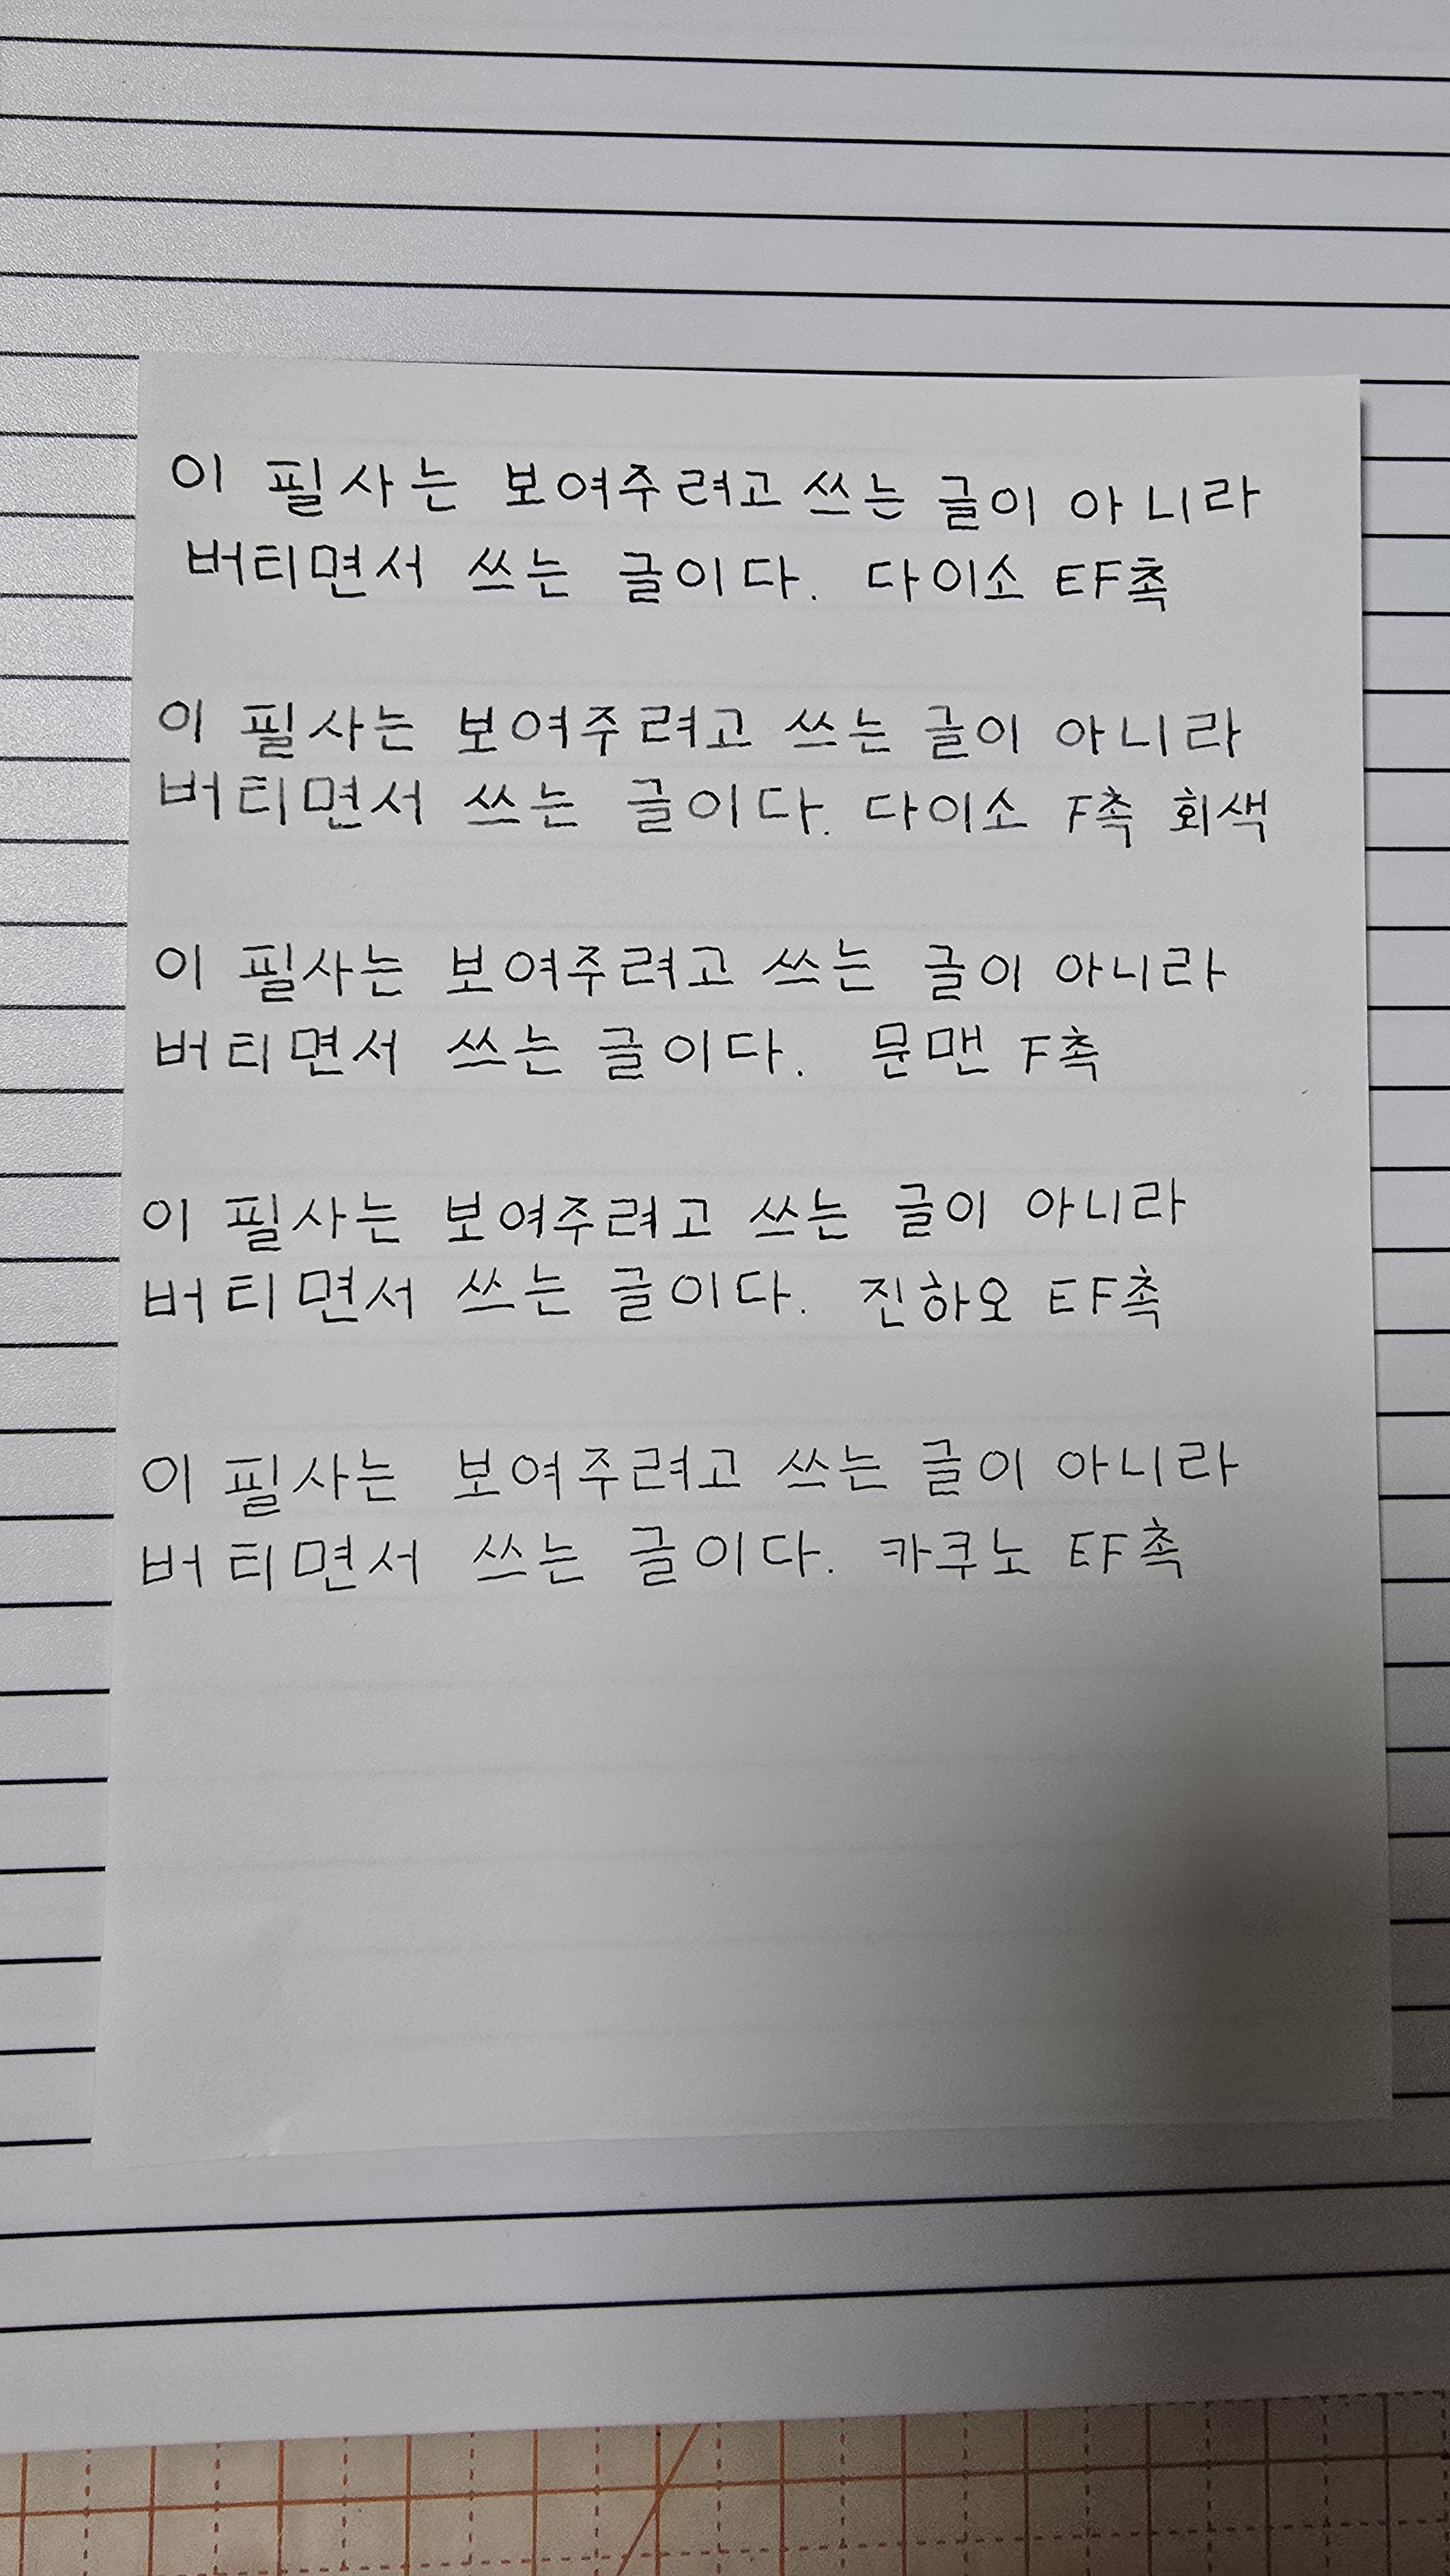 이 필사는 보여주려고 쓰는 글이 아니라
버티면서 쓰는 글이다. 다이소 EF촉
이 필사는 보여주려고 쓰는 글이 아니라
버티면서 쓰는 글이다. 다이소 F촉 회색
이 필사는 보여주려고 쓰는 글이 아니라
버티면서 쓰는 글이다. 문맨 F촉
이 필사는 보여주려고 쓰는 글이 아니라
버티면서 쓰는 글이다. 진하오 EF촉
이 필사는 보여주려고 쓰는 글이 아니라
버티면서 쓰는 글이다. 카쿠노 EF촉